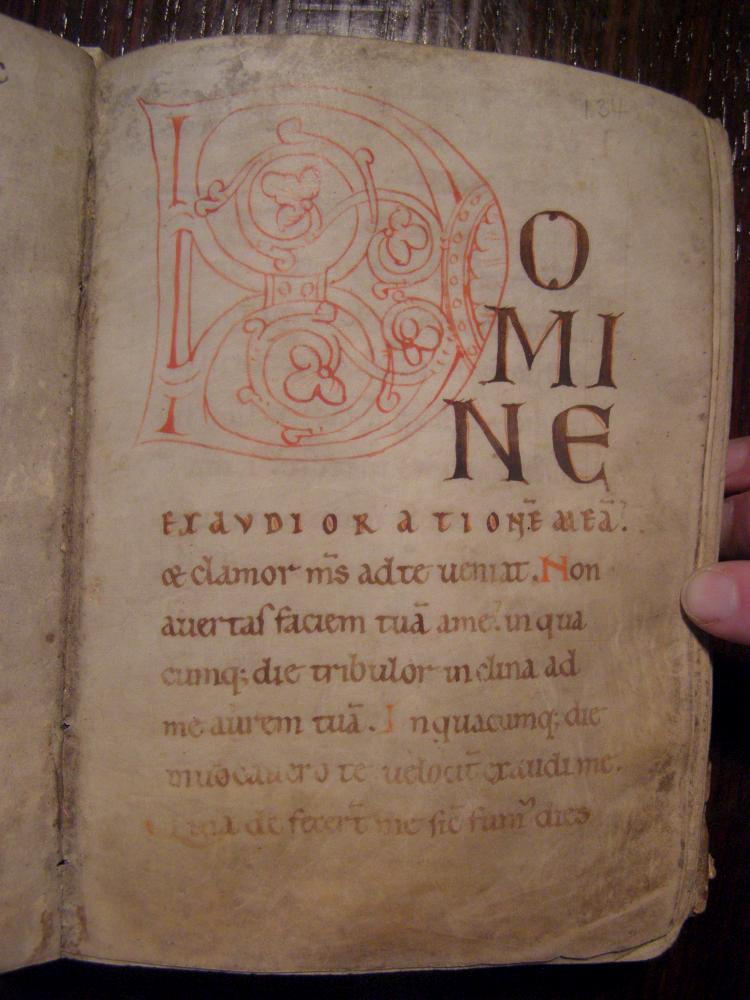 134
DO
MI
NE
EXAUDI ORATIONĒ MEĀ.
& clamor m̄s ad te ueniat. Non
auertas faciem tuā a me. in qua
cumq; die tribulor inclina ad
me aurem tuā. In quacumq; die
inuocauero te uelocit̄ exaudi me.
Quia defecer̄t sic̄ fum᷒ dies